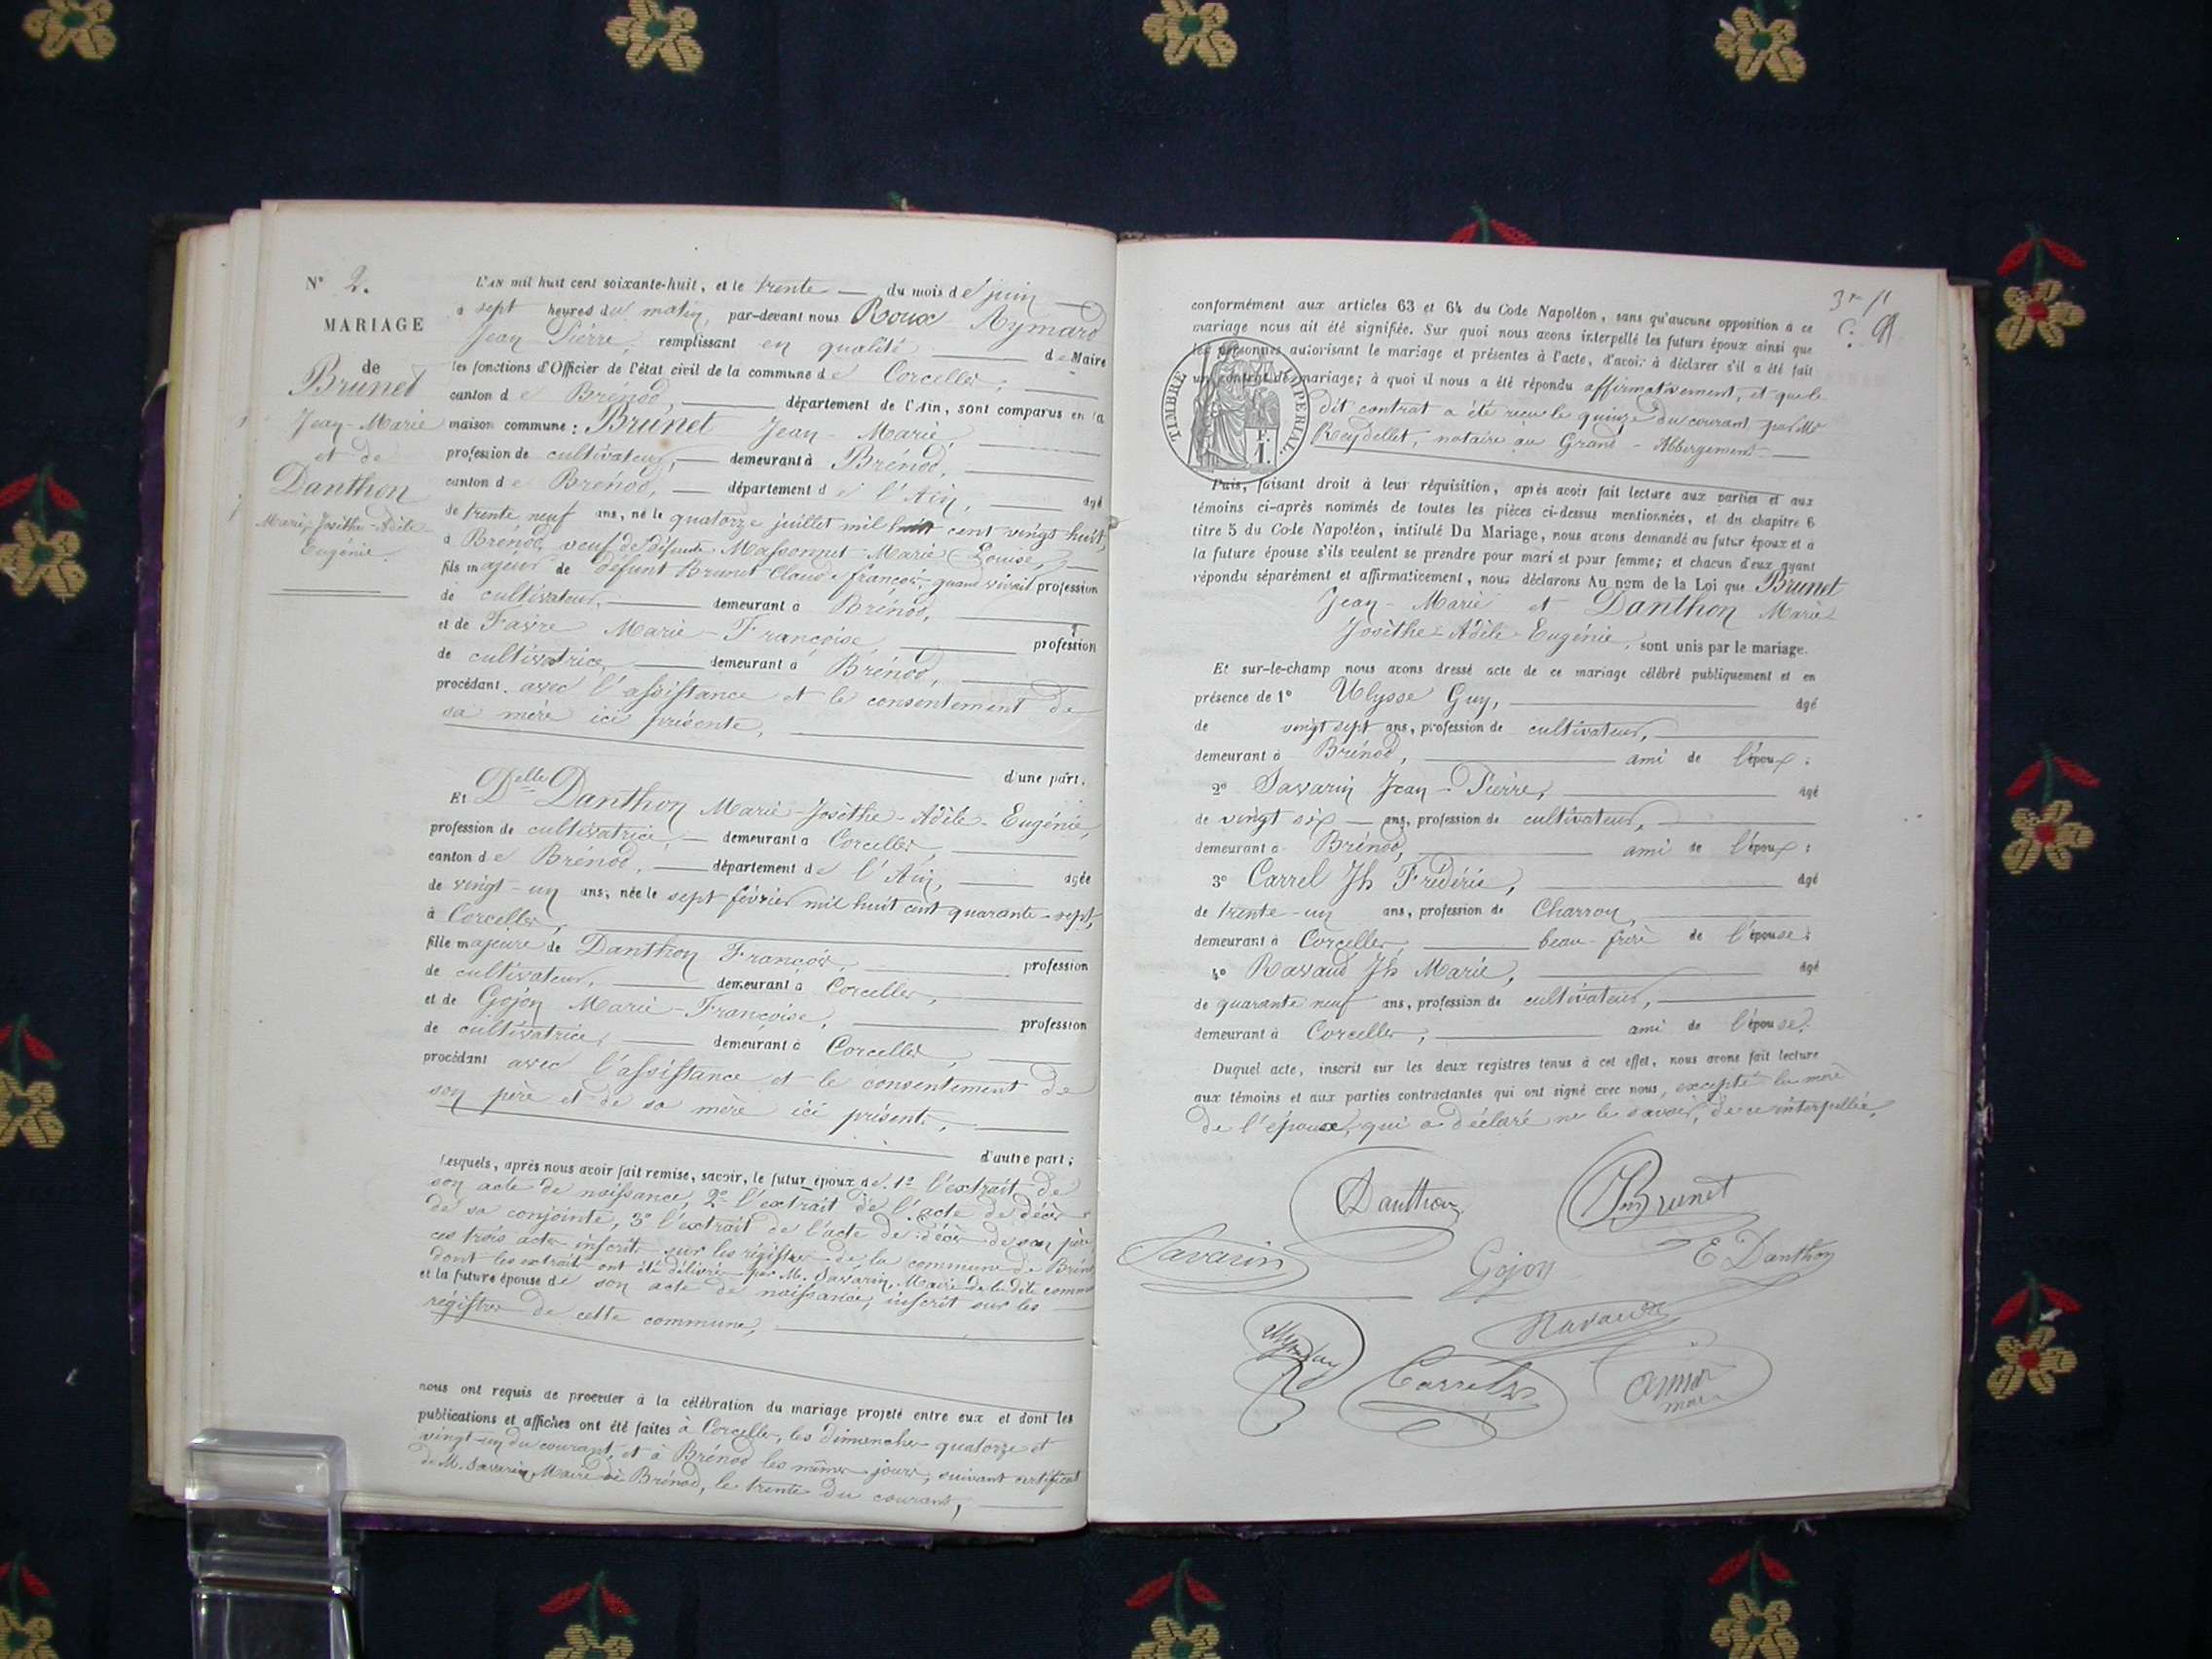 N° 2.
MARIAGE
de
Brunet
Jean-Marie
et de
Danthon
Marie-Josèthe-Adèle
Eugénie
L'AN mil huit cent soixante-huit, et le trente du mois de juin
à sept heures du matin, par-devant nous Roux Aymard
Jean Pierre, remplissant en qualité de Maire
les fonctions d'Officier de l'état civil de la commune de Corcelles,
canton de Brénod, département de l'Ain, sont comparus en la
maison commune : Brunet Jean-Marie,
profession de cultivateur, demeurant à Brénod,
canton de Brénod, département de l'Ain, agé
de trente neuf ans, né le quatorze juillet mil huit cent vingt huit,
à Brénod, veuf de défunte Massonnet Marie Louise,
fils majeur de défunt Brunet Claude françois, quand vivait profession
de cultivateur, demeurant à Brénod,
et de Favre Marie-Françoise, profession
de cultivatrice, demeurant à Brénod,
procédant avec l'assistance et le consentement de
sa mère ici présente,
d'une part.
Et Delle Danthon Marie-Josèthe-Adèle-Eugénie,
profession de cultivatrice, demeurant à Corcelles,
canton de Brénod, département de l'Ain, agée
de vingt-un ans, née le sept février mil huit cent quarante-sept,
à Corcelles,
fille majeure de Danthon François, profession
de cultivateur, demeurant à Corcelles,
et de Gojon Marie-Françoise, profession
de cultivatrice, demeurant à Corcelles,
procédant avec l'assistance et le consentement de
son père et de sa mère ici présents,
d'autre part ;
Lesquels, après nous avoir fait remise, savoir, le futur époux de 1° l'extrait de
son acte de naissance, 2° l'extrait de l'acte de décès
de sa conjointe, 3° l'extrait de l'acte de décès de son père,
ces trois actes inscrits sur les régistres de la commune de Brénod
dont les extraits ont été délivrés par M. Savarin, Maire de la dite commune
et la future épouse de son acte de naissance, inscrit sur les
régistres de cette commune,
nous ont requis de procéder à la célébration du mariage projeté entre eux et dont les
publications et affiches ont été faites à Corcelles, les dimanches quatorze et
vingt-un du courant, et à Brénod les mêmes jours, suivant certificat
de M. Savarin, Maire de Brénod, le trente du courant,
conformément aux articles 63 et 64 du Code Napoléon, sans qu'aucune opposition à ce
mariage nous ait été signifiée. Sur quoi nous avons interpellé les futurs époux ainsi que
les personnes autorisant le mariage et présentes à l'acte, d'avoir à déclarer s'il a été fait
un contrat de mariage ; à quoi il nous a été répondu affirmativement, et que le
dit contrat a été reçu le quinze du courant par Me
Reydellet, notaire au Grand-Abbergement
TIMBRE IMPERIAL
F.
1.
Puis, faisant droit à leur réquisition, après avoir fait lecture aux parties et aux
témoins ci-après nommés de toutes les pièces ci-dessus mentionnées, et du chapitre 6
titre 5 du Code Napoléon, intitulé Du Mariage, nous avons demandé au futur époux et à
la future épouse s'ils veulent se prendre pour mari et pour femme ; et chacun d'eux ayant
répondu séparément et affirmativement, nous déclarons Au nom de la Loi que Brunet
Jean-Marie et Danthon Marie
Josèthe-Adèle-Eugénie, sont unis par le mariage.
Et sur-le-champ nous avons dressé acte de ce mariage célébré publiquement et en
présence de 1° Ulysse Guy, agé
de vingt sept ans, profession de cultivateur,
demeurant à Brénod, ami de l'époux ;
2° Savarin Jean-Pierre, agé
de vingt six ans, profession de cultivateur,
demeurant à Brénod, ami de l'époux ;
3° Carrel Jh Fréderic, agé
de trente-un ans, profession de Charron,
demeurant à Corcelles, beau-frère de l'épouse ;
4° Ravaud Jh Marie, agé
de quarante neuf ans, profession de cultivateur,
demeurant à Corcelles, ami de l'épouse.
Duquel acte, inscrit sur les deux registres tenus à cet effet, nous avons fait lecture
aux témoins et aux parties contractantes qui ont signé avec nous, excepté la mère
de l'époux, qui a déclaré ne le savoir, de ce interpellée.
Danthon
Brunet
Savarin
Gojon
E Danthon
Ravaud
Carrel